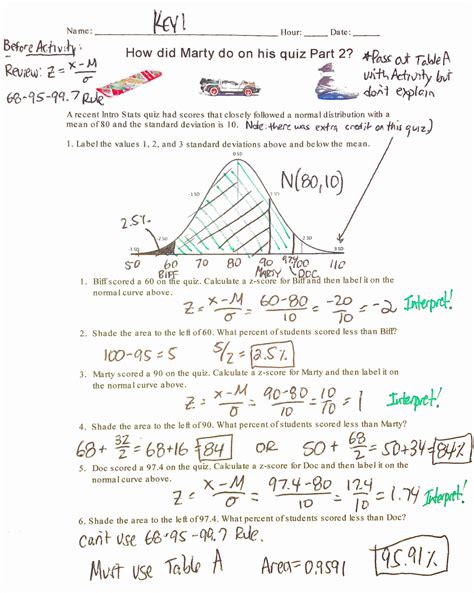 Name: KEY! Hour: Date:
Before Activity:
Review: Z = x-M/σ
68-95-99.7 Rule
How did Marty do on his quiz Part 2?
*Pass out Table A
with Activity but
don't explain
A recent Intro Stats quiz had scores that closely followed a normal distribution with a
mean of 80 and the standard deviation is 10. Note: there was extra credit on this quiz)
1. Label the values 1, 2, and 3 standard deviations above and below the mean.
N(80,10)
2.5%
50 60 70 80 90 97.4 100 110
BIFF MARTY DOC
1. Biff scored a 60 on the quiz. Calculate a z-score for Biff and then label it on the
normal curve above.
Z = x-M/σ = 60-80/10 = -20/10 = -2 Interpret!
2. Shade the area to the left of 60. What percent of students scored less than Biff?
100-95=5 5/2=2.5%
3. Marty scored a 90 on the quiz. Calculate a z-score for Marty and then label it on
the normal curve above.
Z = x-M/σ = 90-80/10 = 10/10 = 1 Interpret!
4. Shade the area to the left of 90. What percent of students scored less than Marty?
68+ 32/2 = 68+16 = 84 OR 50 + 68/2 = 50+34 = 84%
5. Doc scored a 97.4 on the quiz. Calculate a z-score for Doc and then label it on the
normal curve above.
Z = x-M/σ = 97.4-80/10 = 17.4/10 = 1.74 Interpret!
6. Shade the area to the left of 97.4. What percent of students scored less than Doc?
can't use 68-95-99.7 Rule.
Must use Table A Area=0.9591 95.91%